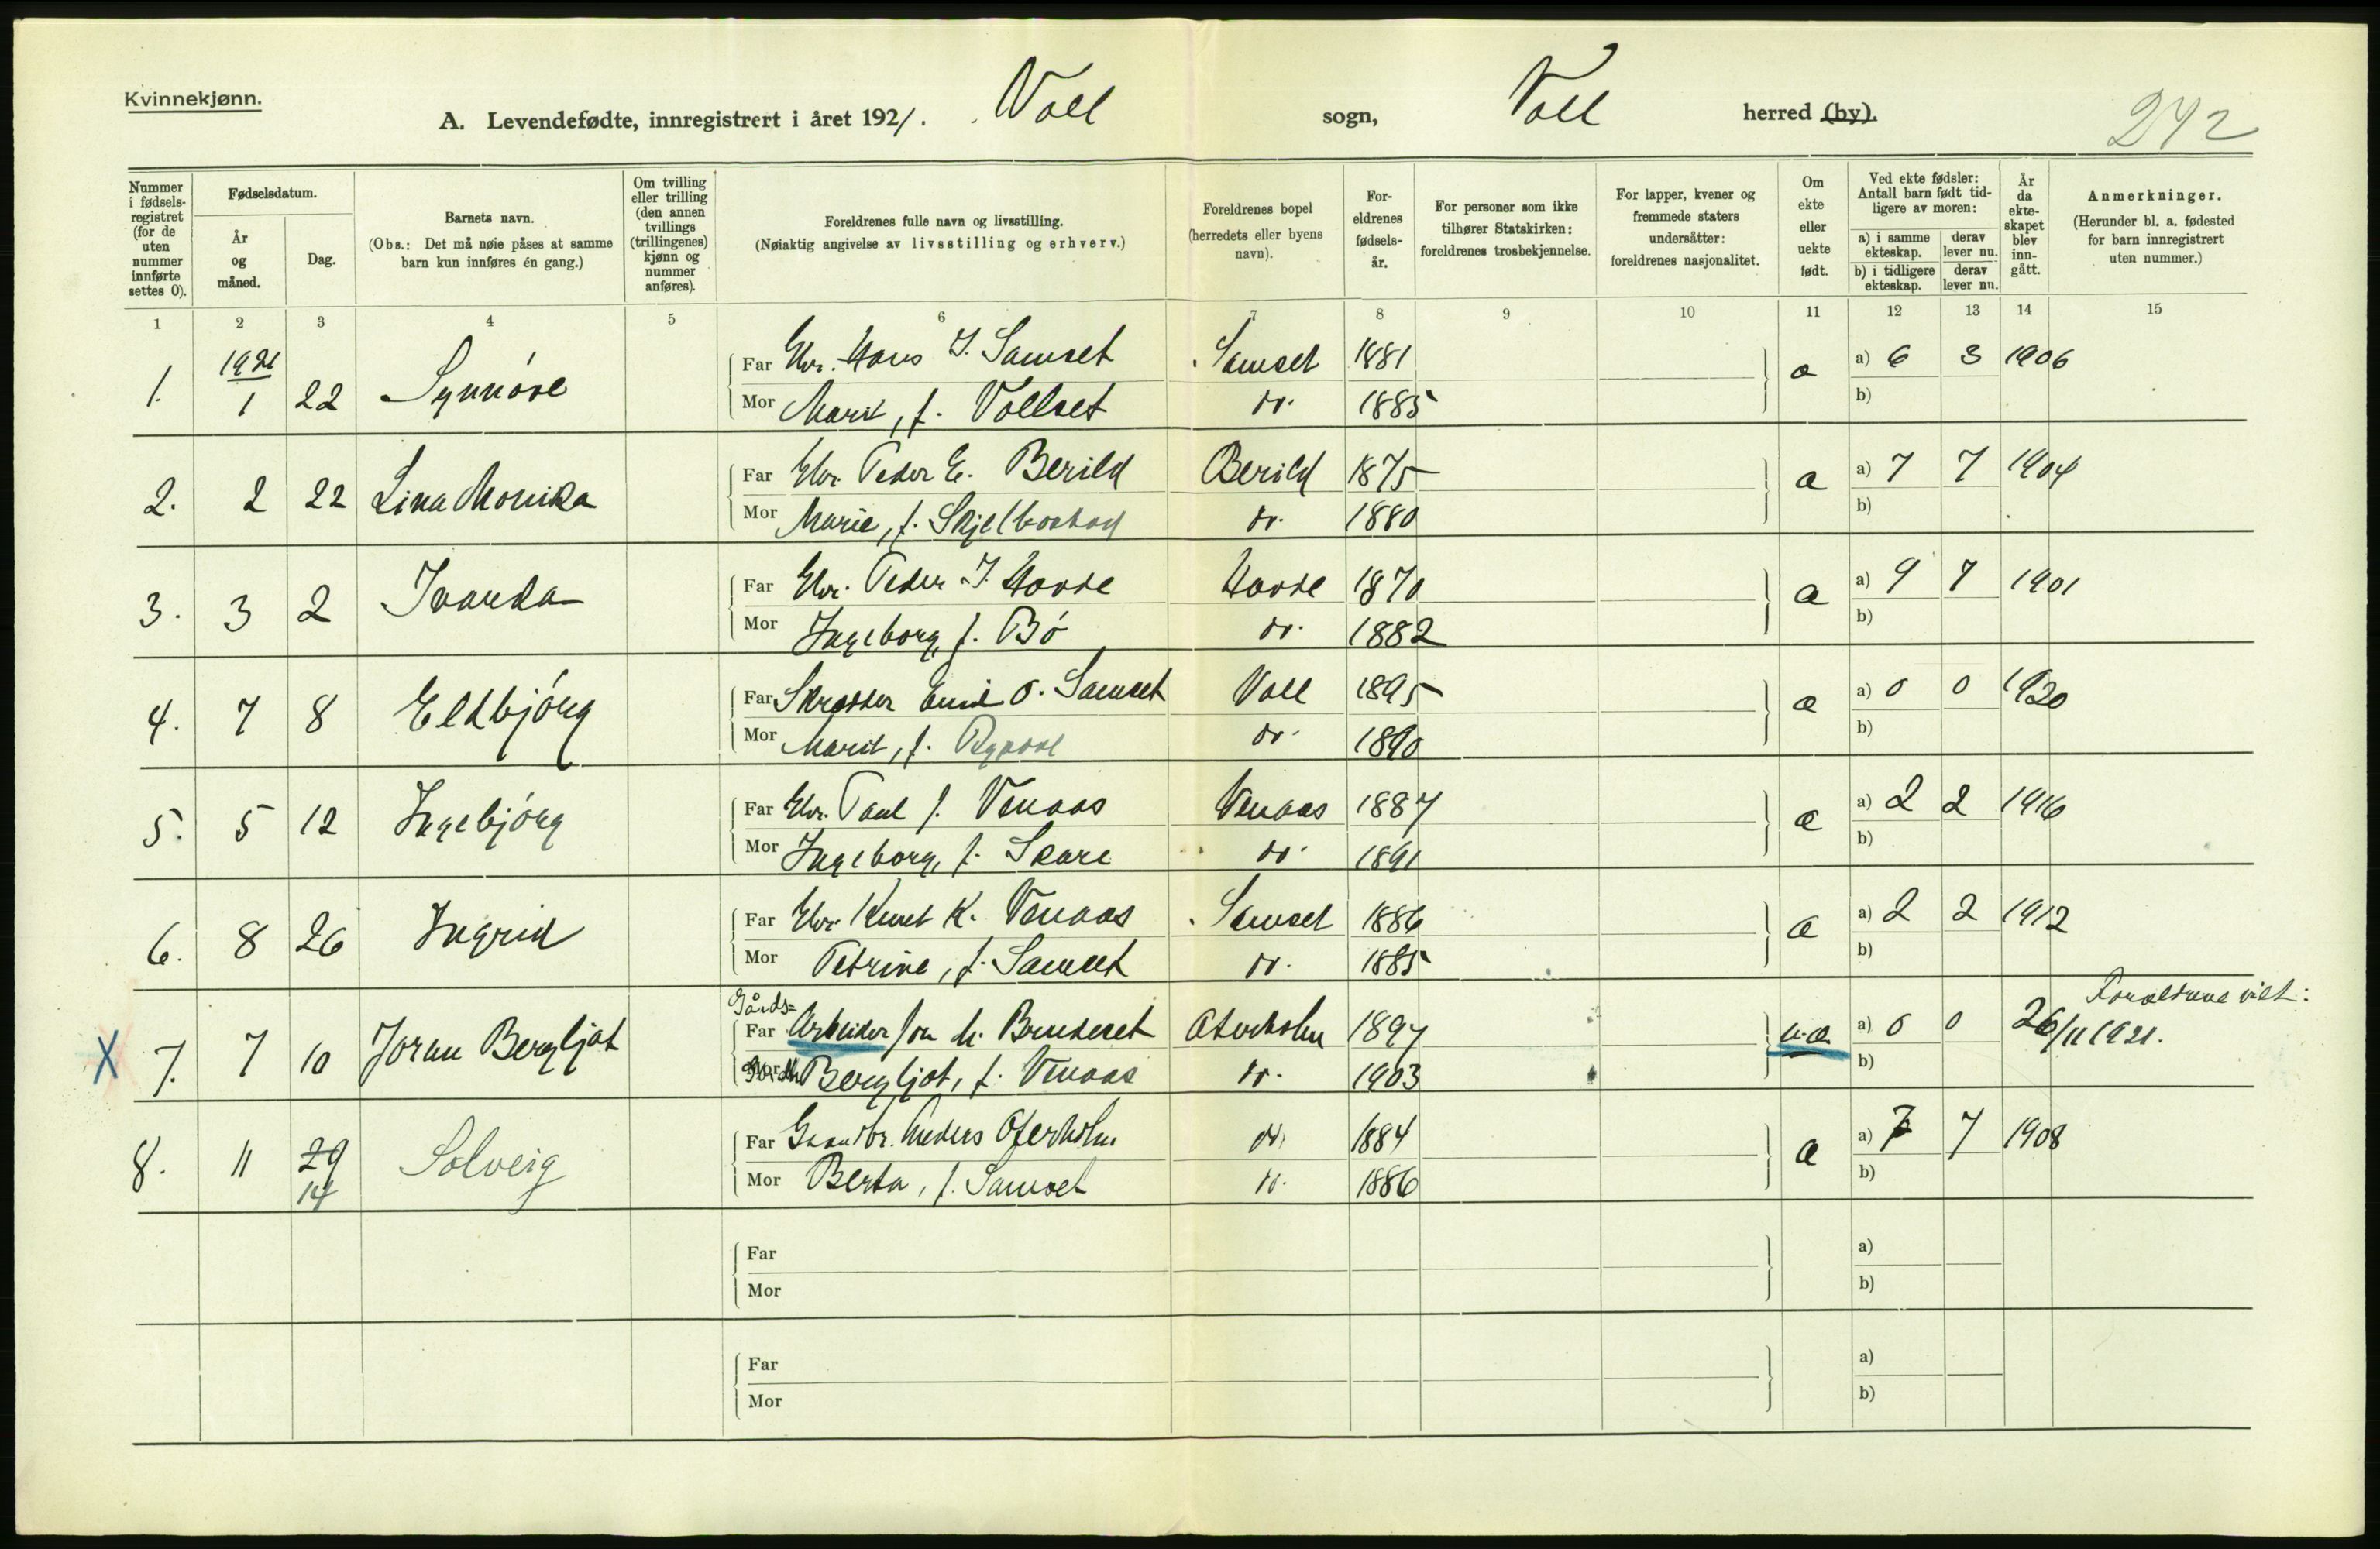 Kvinnekjønn.
A. Levendefødte, innregistrert i året 1921. Voll sogn, Voll herred (by).
242
Nummer i fødselsregistret (for de uten nummer innførte settes 0).
Fødselsdatum.
År og måned.
Dag.
Barnets navn.
(Obs.: Det må nøie påses at samme barn kun innføres én gang.)
Om tvilling eller trilling (den annen tvillings (trillingenes) kjønn og nummer anføres).
Foreldrenes fulle navn og livsstilling.
(Nøiaktig angivelse av livsstilling og erhverv.)
Foreldrenes bopel (herredets eller byens navn).
Foreldrenes fødselsår.
For personer som ikke tilhører Statskirken: foreldrenes trosbekjennelse.
For lapper, kvener og fremmede staters undersåtter: foreldrenes nasjonalitet.
Om ekte eller uekte født.
Ved ekte fødsler: Antall barn født tidligere av moren:
a) i samme ekteskap. derav lever nu.
b) i tidligere ekteskap. derav lever nu.
År da ekteskapet blev inngått.
Anmerkninger.
(Herunder bl. a. fødested for barn innregistrert uten nummer.)
1 2 3 4 5 6 7 8 9 10 11 12 13 14 15
1. 1921 1 22 Synnöve Far Gbr. Hans I. Samset Samset 1881 æ a) 6 3 1906
Mor Marit, f. Vollset do. 1885 b)
2. 2 22 Lina Monika Far Gbr. Peder E. Berild Berild 1875 æ a) 7 7 1904
Mor Marie, f. Skjelbostad do. 1880 b)
3. 3 2 Ivanda Far Gbr. Peder I. Hovde Hovde 1870 æ a) 9 7 1901
Mor Ingeborg, f. Bö do. 1882 b)
4. 7 8 Eldbjörg Far Skredder Emil O. Samset Voll 1895 æ a) 0 0 1920
Mor Marit, f. do. 1890 b)
5. 5 12 Ingebjörg Far Gbr. Paul J. Venaas Venaas 1887 æ a) 2 2 1916
Mor Ingeborg, f. Skare do. 1891 b)
6. 8 26 Ingrid Far Gbr. Knut K. Venaas Samset 1886 æ a) 2 2 1912
Mor Petrine, f. Samset do. 1885 b)
X 7. 7 10 Jorun Bergljot Gårds= Far Arbeider Jon M. Brudeset Oterholm 1897 u.æ. a) 0 0 Foreldrene viet: 26/11 1921.
Mor Bergljot, f. Venaas do. 1903 b)
8. 11 29 14 Solveig Far Gaardbr. Anders Oterholm do. 1884 æ a) 7 7 1908
Mor Berta, f. Samset do. 1886 b)
Far a)
Mor b)
Far a)
Mor b)